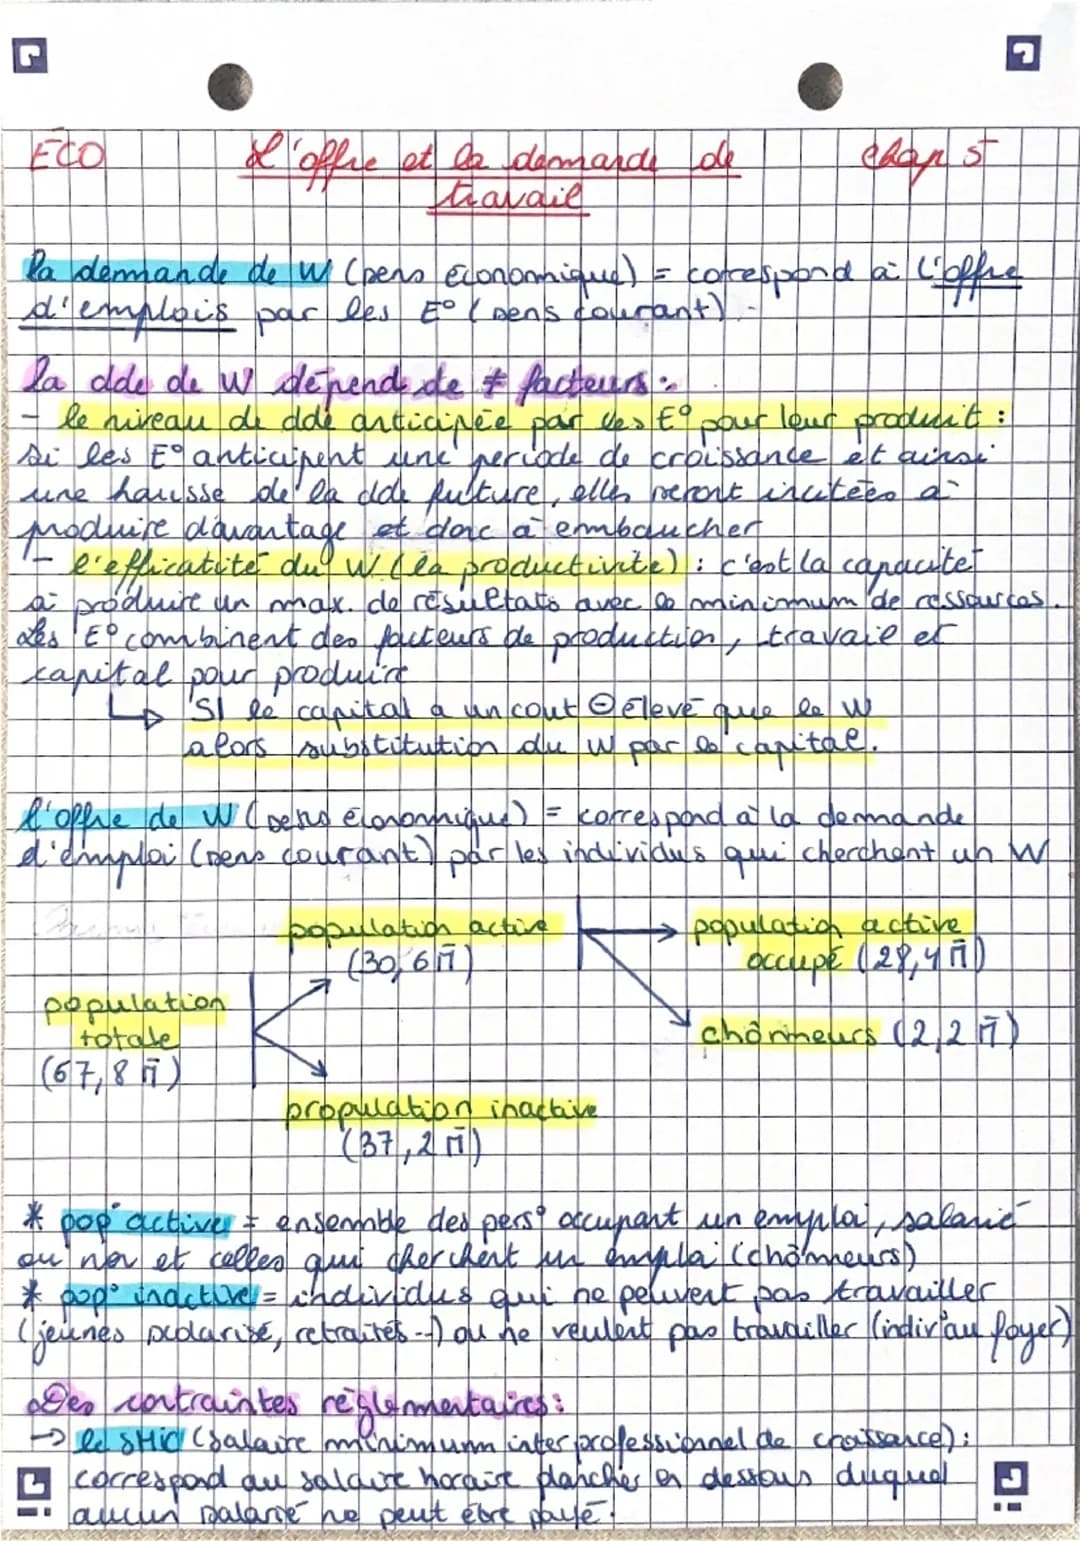 ECO L'offre et la demande de Chap 5
travail
la demande de W (sens économique) = correspond à l'offre
d'emplois par les E° (sens courant).
la dde de W dépend de ≠ facteurs :
- le niveau de dde anticipée par les E° pour leur produit :
Si les E° anticipent une période de croissance et ainsi
une hausse de la dde future, elles seront incitées à
produire davantage et donc à embaucher
- l'efficatité du W (la productivité) : c'est la capacité
à produire un max. de résultats avec le minimum de ressources.
Les E° combinent des facteurs de production, travail et
capital pour produire
↳ SI le capital a un cout ⊖ élevé que le W
alors substitution du W par le capital.
l'offre de W (sens économique) = correspond à la demande
d'emploi (sens courant) par les individus qui cherchent un W
population active → population active
(30,6 M̄) occupé (28,4 M̄)
population
totale chômeurs (2,2 M̄)
(67,8 M̄)
propulation inactive
(37,2 M̄)
* pop° active = ensemble des pers° occupant un emploi, salarié
ou non et celles qui cherchent un emploi (chômeurs)
* pop° inactive = individus qui ne peuvent pas travailler
(jeunes scolarisé, retraités --) ou ne veulent pas travailler (indiv° au foyer)
Des contraintes réglementaires :
→ le SMIC (salaire minimumn interprofessionnel de croissance) :
correspond au salaire horaire plancher en dessous duquel
aucun salarié ne peut être payé.